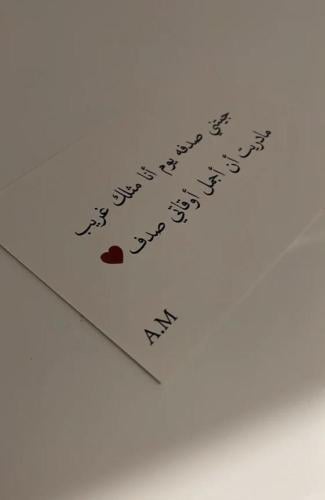 جيتني صدفه يوم أنا مثلك غريب
مادريت أن أجمل أوقاتي صدف ❤
A.M